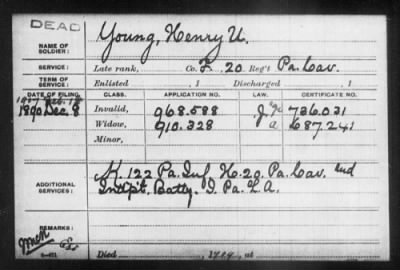 DEAD
NAME OF SOLDIER:
Young, Henry U.
SERVICE:
Late rank, Co. F. 20 Reg't Pa. Cav.
TERM OF SERVICE:
Enlisted , 1 Discharged , 1
DATE OF FILING. CLASS. APPLICATION NO. LAW. CERTIFICATE NO.
Feb. 18 Invalid, 968.588 736.031
1890 Dec. 8 Widow, 910.328 687.241
Minor,
ADDITIONAL SERVICES:
K. 122 Pa. Inf. H. 20. Pa. Cav. and
Indpt. Batty. I. Pa. L. A.
REMARKS:
Died , at